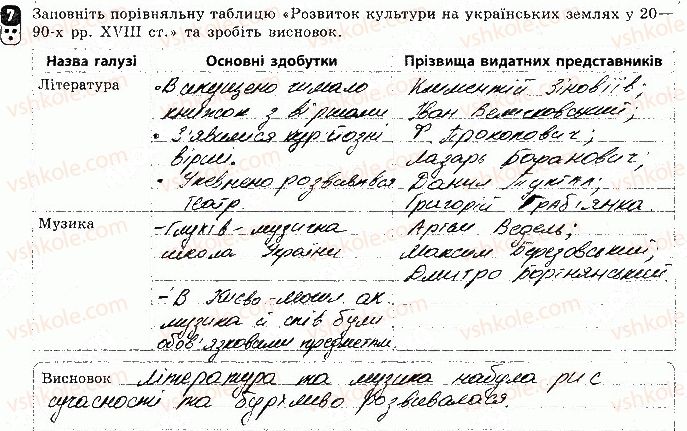 7 Заповніть порівняльну таблицю «Розвиток культури на українських землях у 20—
90-х рр. XVIII ст.» та зробіть висновок.
Назва галузі Основні здобутки Прізвища видатних представників
Література - Випущено чимало Климентій Зіновіїв;
книжок з віршами Іван Величковський;
• З'явилися курйозні Ф Прокопович;
вірші. Лазарь Баранович;
• Упевнено розвивався Данил
театр. Григорій Граб'янка.
Музика - Глухів - музична Артем Ведель;
школа України Максим Березовський;
Дмитро Бортнянський
- В Києво-Мог. ак.
музика й спів були
обов'язковими предметами.
Висновок література та музика набула рис
сучасності та бурхливо розвивалася.
vshkole.com